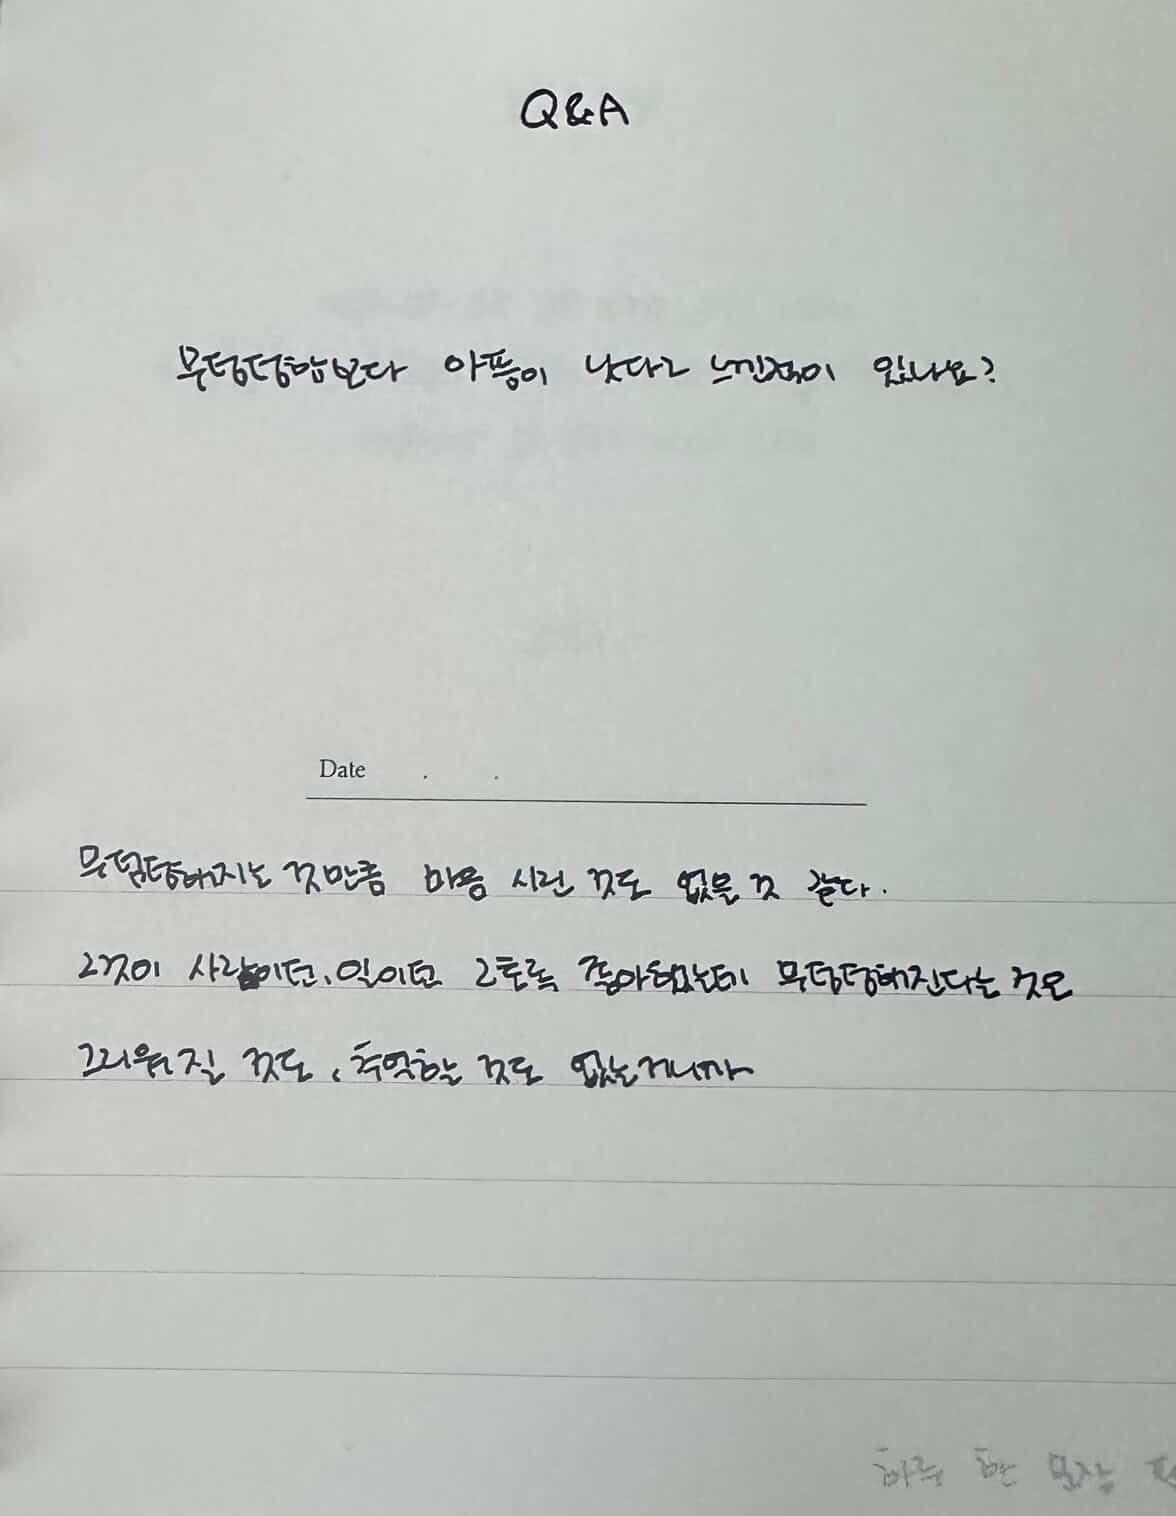 Q&A
무덤덤함보다 아픔이 낫다고 느낀적이 있나요?
Date . .
무덤덤해지는 것만큼 마음 시린 것도 없을 것 같다.
그것이 사람이던, 일이던 그토록 좋아했는데 무덤덤해진다는 것은
그리워질 것도, 추억하는 것도 없는거니까
하루 한 문장